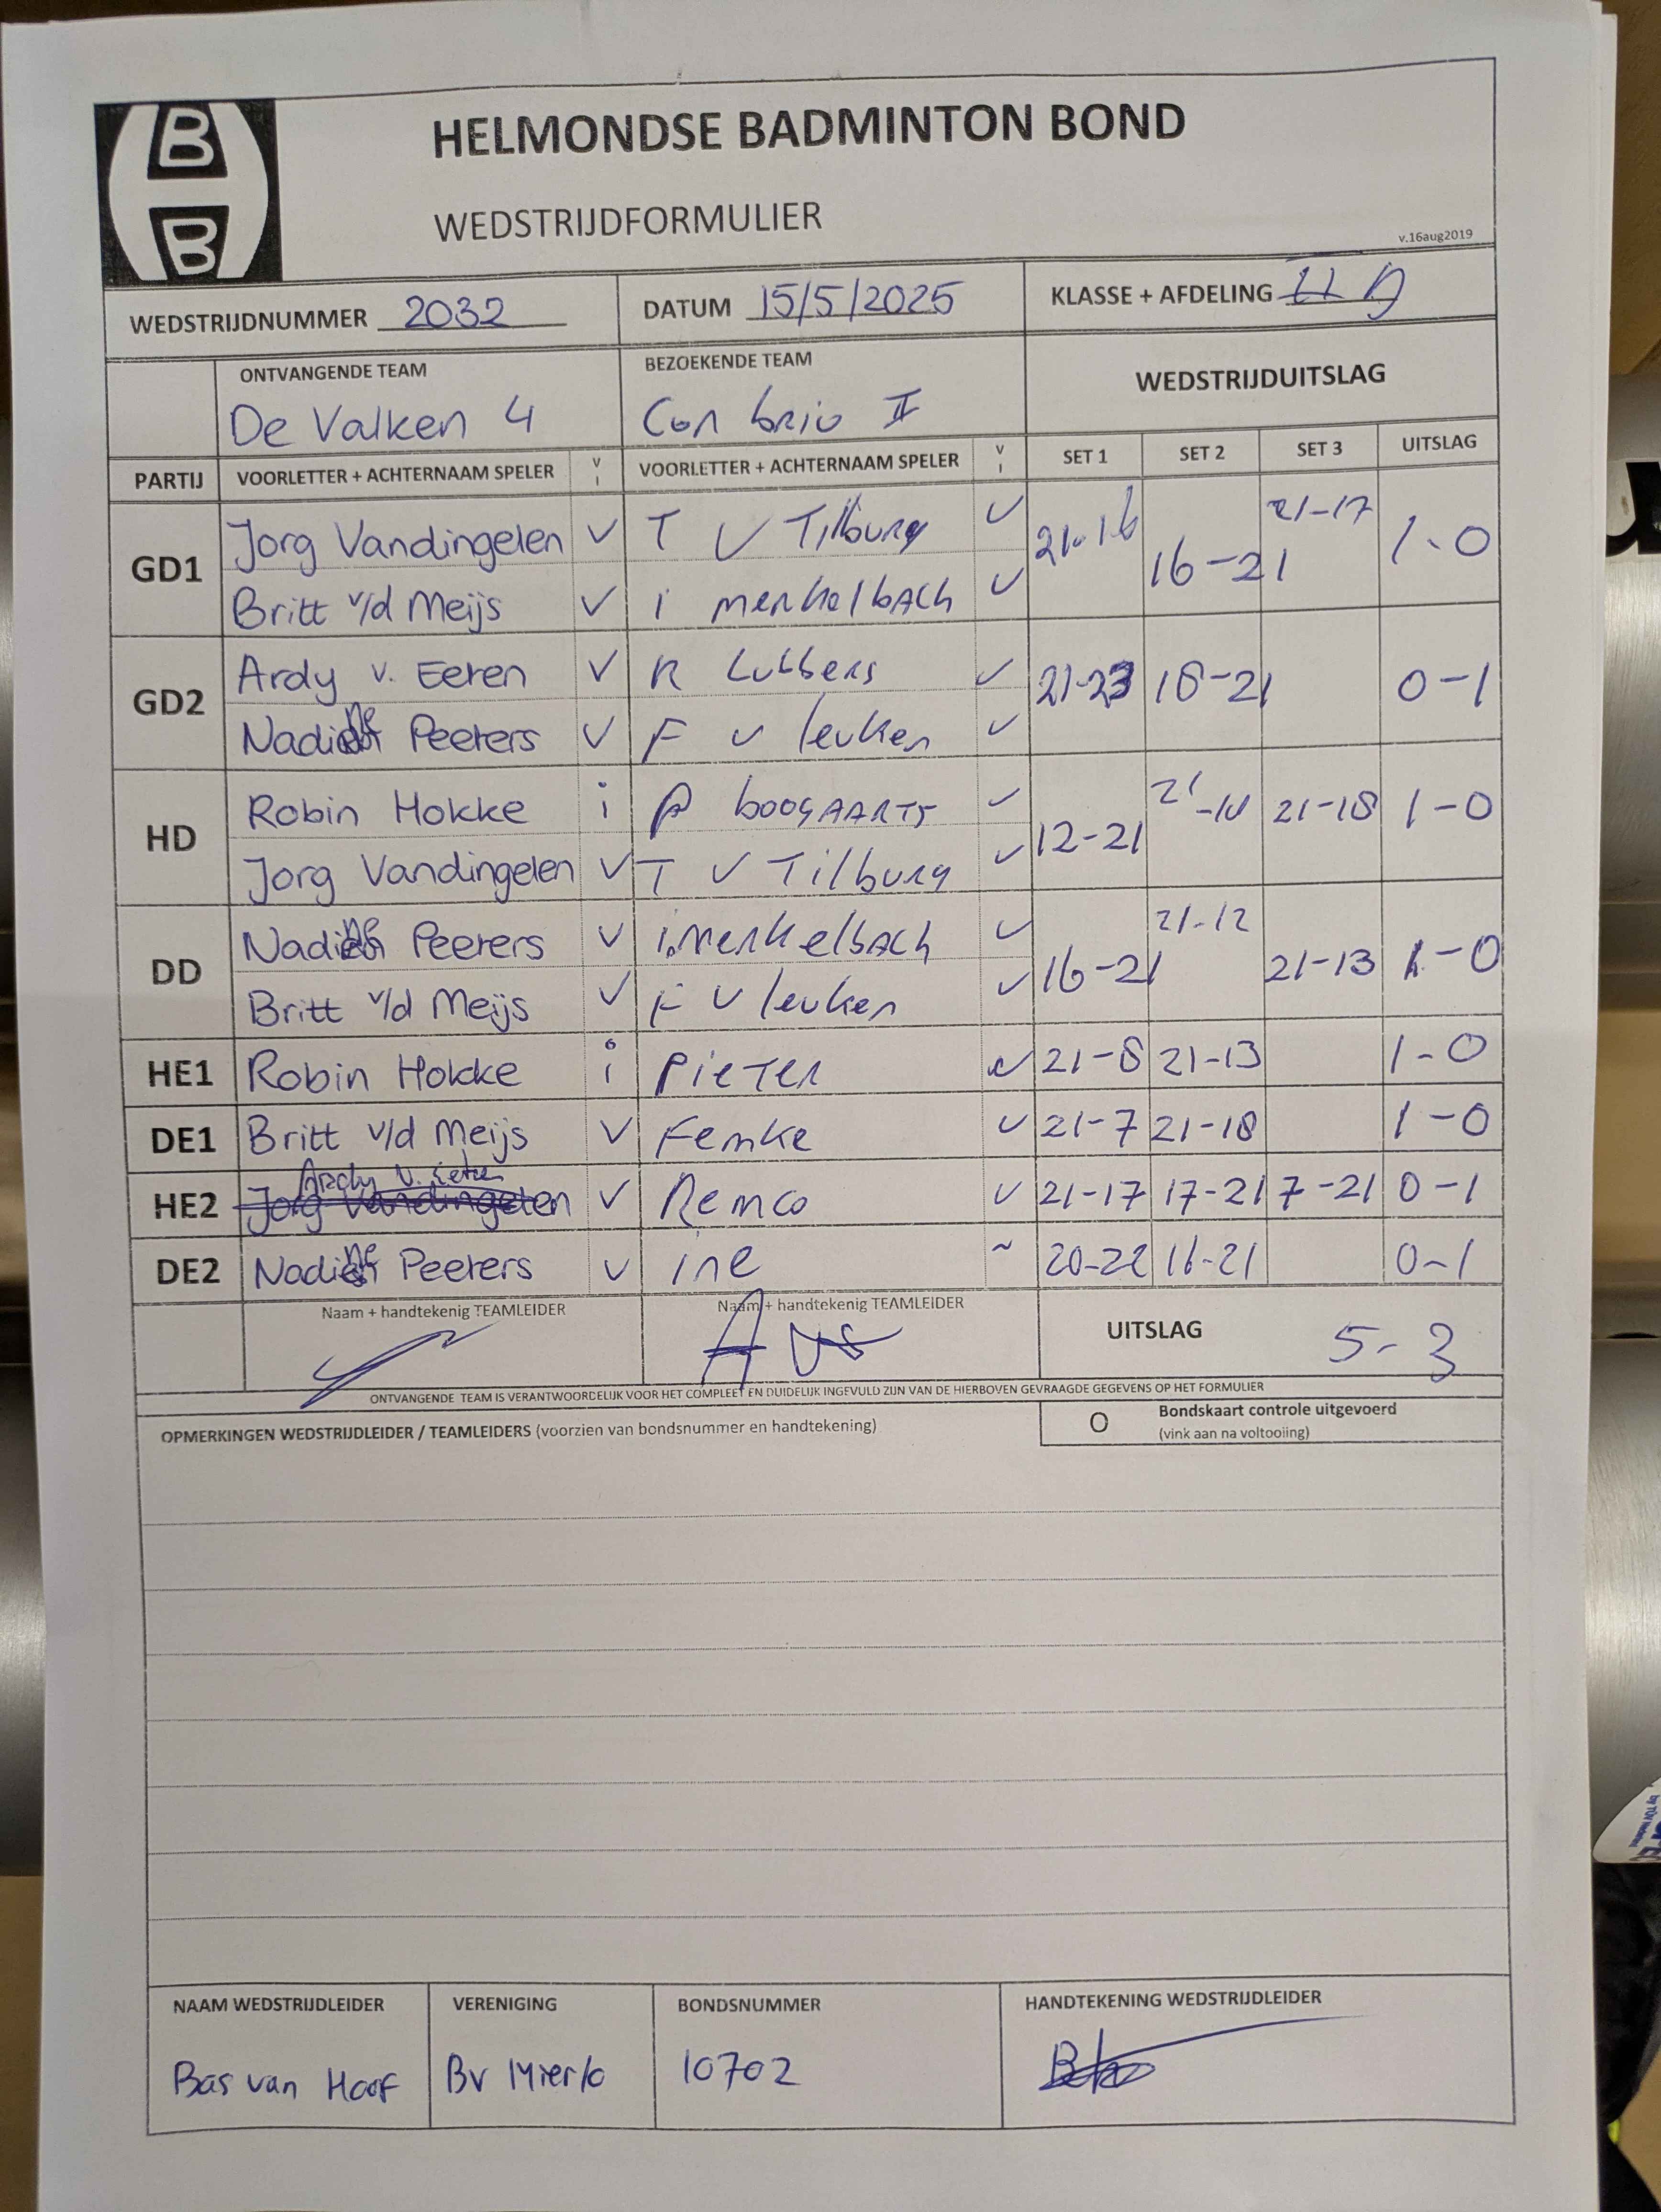 B
B
HELMONDSE BADMINTON BOND
WEDSTRIJDFORMULIER
v.16aug2019
WEDSTRIJDNUMMER 2032 DATUM 15/5/2025 KLASSE + AFDELING
ONTVANGENDE TEAM BEZOEKENDE TEAM WEDSTRIJDUITSLAG
De Valken 4 Con brio II
PARTIJ VOORLETTER + ACHTERNAAM SPELER V I VOORLETTER + ACHTERNAAM SPELER V I SET 1 SET 2 SET 3 UITSLAG
GD1 Jorg Vandingelen V T V Tilburg V 21-16 16-21 21-17 1-0
Britt v/d Meijs V i merkelbach V
GD2 Ardy v. Eeren V R Lubbers V 21-23 18-21 0-1
Nadine Peeters V F v leuken V
HD Robin Hokke i P boogaarts V 12-21 21-18 1-0
Jorg Vandingelen V T V Tilburg V
DD Nadine Peeters V i. merkelbach V 16-21 21-12 21-13 1-0
Britt v/d Meijs V F V leuken V
HE1 Robin Hokke i Pieter V 21-8 21-13 1-0
DE1 Britt v/d Meijs V Femke V 21-7 21-18 1-0
Ardy v. Eeren
HE2 Jorg Vandingelen V Remco V 21-17 17-21 7-21 0-1
DE2 Nadine Peeters V ine ~ 20-22 16-21 0-1
Naam + handtekenig TEAMLEIDER Naam + handtekenig TEAMLEIDER UITSLAG 5-3
ONTVANGENDE TEAM IS VERANTWOORDELIJK VOOR HET COMPLEET EN DUIDELIJK INGEVULD ZIJN VAN DE HIERBOVEN GEVRAAGDE GEGEVENS OP HET FORMULIER
OPMERKINGEN WEDSTRIJDLEIDER / TEAMLEIDERS (voorzien van bondsnummer en handtekening)
O Bondskaart controle uitgevoerd
(vink aan na voltooiing)
NAAM WEDSTRIJDLEIDER VERENIGING BONDSNUMMER HANDTEKENING WEDSTRIJDLEIDER
Bas van Hoof BV Mierlo 10702